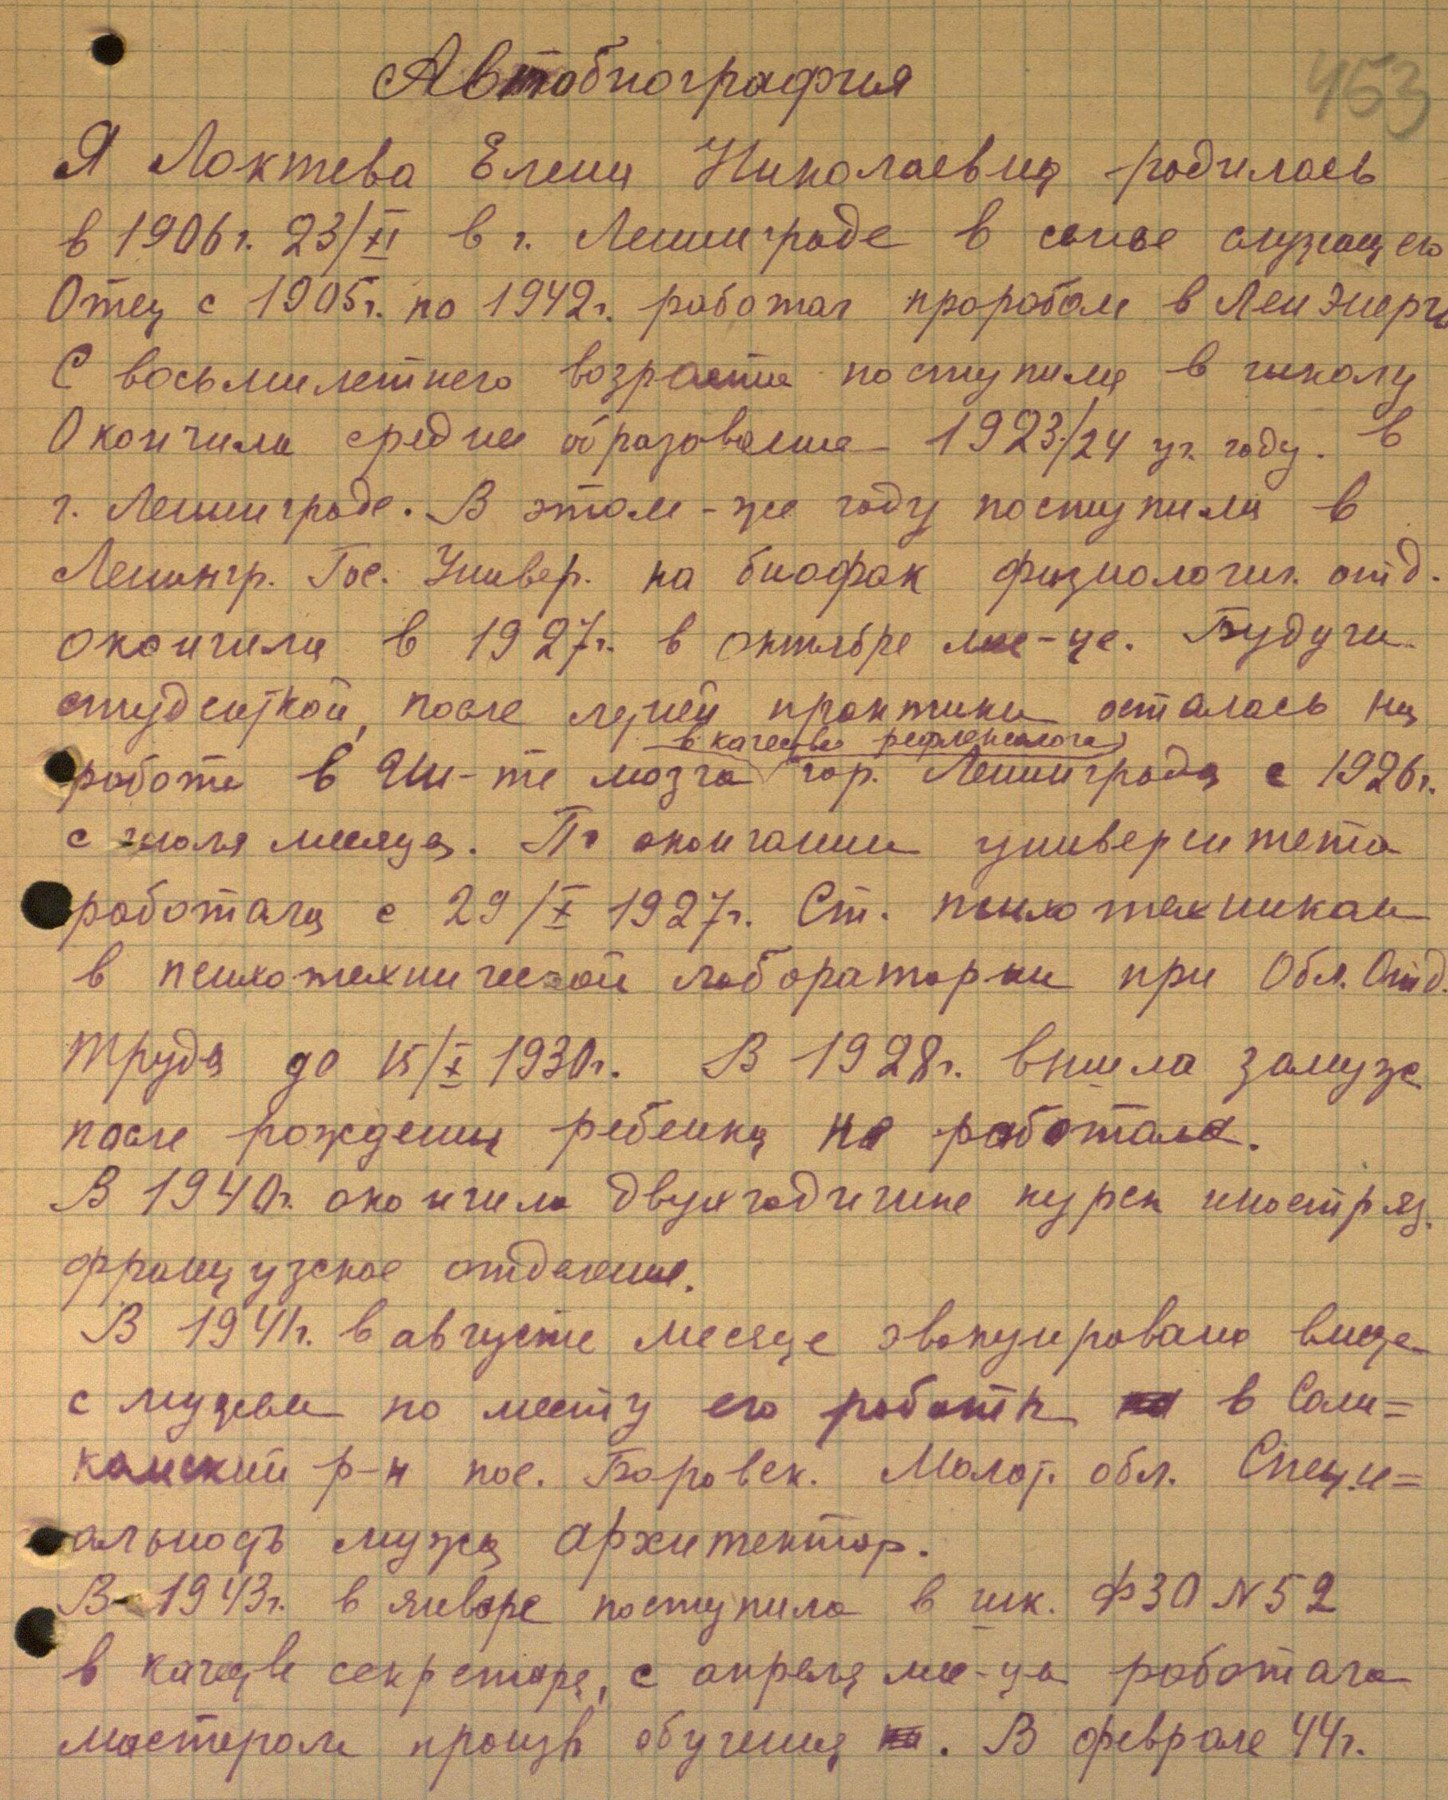 453
Автобиография
Я Локтева Елена Николаевна родилась
в 1906г. 23/XI в г. Ленинграде в семье служащего
Отец с 1905г. по 1942г. работал прорабом в ЛенЭнерго
С восьмилетнего возраста поступила в школу
Окончила среднее образование 1923/24 уч. году. в
г. Ленинграде. В этом-же году поступила в
Ленингр. Гос. Универ. на биофак физиологич. отд.
окончила в 1927г. в октябре мес-це. Будучи
студенткой, после летней практики осталась на
в качестве рефлексолога
работе в Ин-те мозга гор. Ленинграда с 1926г.
с июля месяца. По окончании университета
работала с 29/X 1927г. Ст. психотехником
в психотехнической лаборатории при Обл. Отд.
Труда до 15/X 1930г. В 1928г. вышла замуж
после рождения ребенка не работала.
В 1940г. окончила двухгодичные курсы иностр яз.
французское отделение.
В 1941г. в августе месяце эвакуирована вместе
с мужем по месту его работы в Соли=
камский р-н пос. Боровск. Молот. обл. Специ=
альность мужа архитектор.
В 1943г. в январе поступила в шк. ФЗО N 52
в качестве секретаря, с апреля мес-ца работала
мастером произв обучения. В феврале 44г.